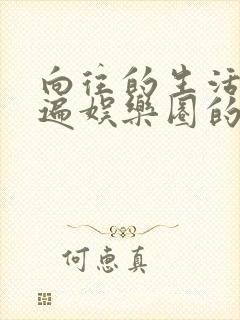 向往的生活
遍娱乐圈的
何惠真